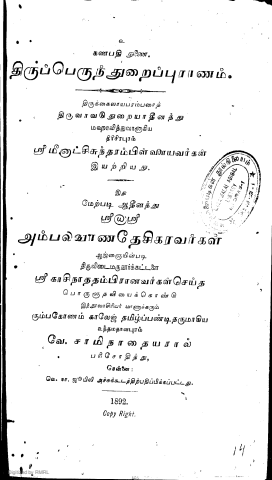 உ
கணபதி துணை.
திருப்பெருந்துறைப்புராணம்.
திருக்கைலாயபரம்பரைத்
திருவாவடுதுறையாதீனத்து
மஹாவித்துவானாகிய
திரிசிரபுரம்
ஸ்ரீ மீனாட்சிசுந்தரம்பிள்ளையவர்கள்
இயற்றியது.
இது
மேற்படி ஆதீனத்து
ஸ்ரீலஸ்ரீ
அம்பலவாணதேசிகரவர்கள்
ஆஜ்ஞையின்படி
திருவிடைமருதூர்க்கட்டளை
ஸ்ரீ காசிநாததம்பிரானவர்கள்செய்த
பொருளுதவியைக்கொண்டு
கும்பகோணம் காலேஜ் தமிழ்ப்பண்டிதருமாகிய
உத்தமதானபுரம்
வே. சாமிநாதையரால்
பரிசோதித்து,
சென்னை:
வெ. நா. ஜூபிலி அச்சுக்கூடத்திற்பதிப்பிக்கப்பட்டது.
1892.
Copy Right.
14